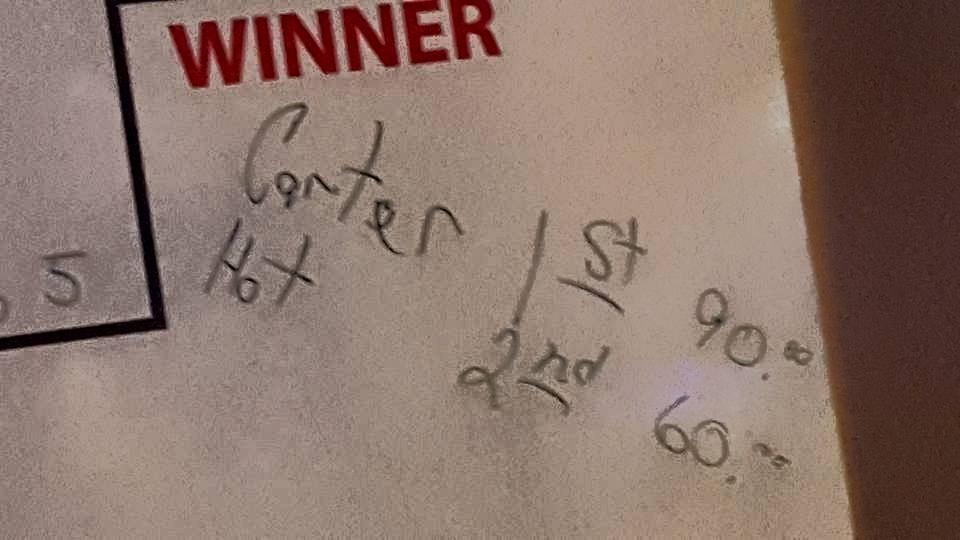 WINNER
Canter
Hot
1st 90.00
2nd 60.00
5